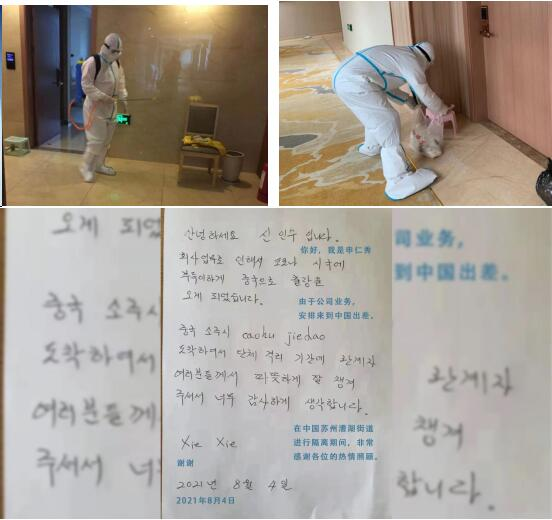 오게 되었
중국 소주시
도착하여서
여러분들께
주셔서 너무
안녕하세요 신인수 입니다.
你好，我是申仁秀
회사업무로 인해서 코로나 시국에
부득이하게 중국으로 출장을
오게 되었습니다.
由于公司业务，
安排来到中国出差。
중국 소주시 caohu jiedao
도착하여서 단체 격리 기간에 관계자
여러분들께서 따뜻하게 잘 챙겨
주셔서 너무 감사하게 생각합니다.
在中国苏州漕湖街道
进行隔离期间，非常
感谢各位的热情照顾。
Xie Xie
谢谢
2021년 8월 4일
2021年8月4日
司业务，
到中国出差。
관계자
챙겨
합니다.